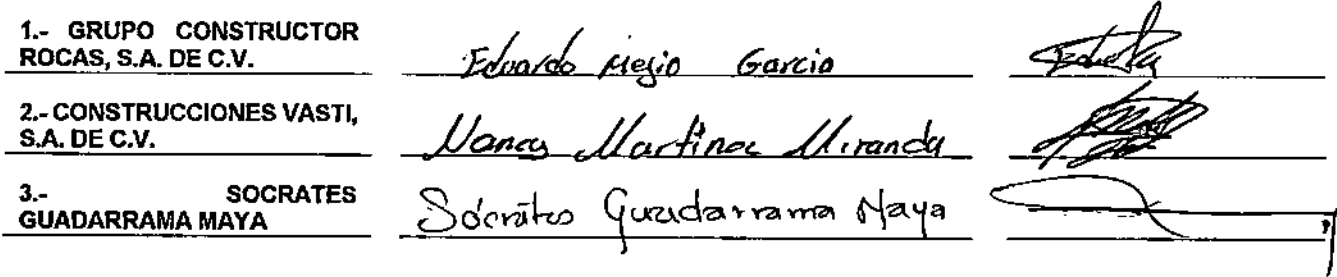 1.- GRUPO CONSTRUCTOR
ROCAS, S.A. DE C.V.
Eduardo Mejio Garcia
2.- CONSTRUCCIONES VASTI,
S.A. DE C.V.
Nancy Martinez Miranda
3.- SOCRATES
GUADARRAMA MAYA
Sócrates Guadarrama Maya